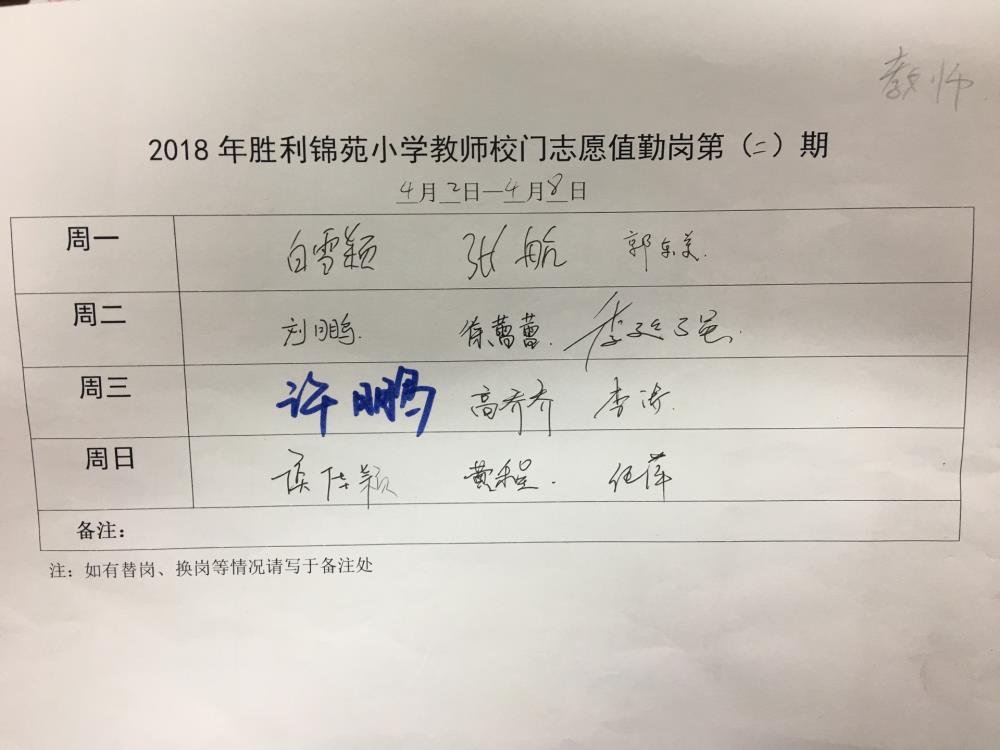 教师
2018年胜利锦苑小学教师校门志愿值勤岗第（二）期
4月2日—4月8日
周一 白雪颖 张航 郭东美
周二 刘鹏 徐蕾蕾
周三 许鹏 高乔乔 李涛
周日 黄程 任萍
备注：
注：如有替岗、换岗等情况请写于备注处